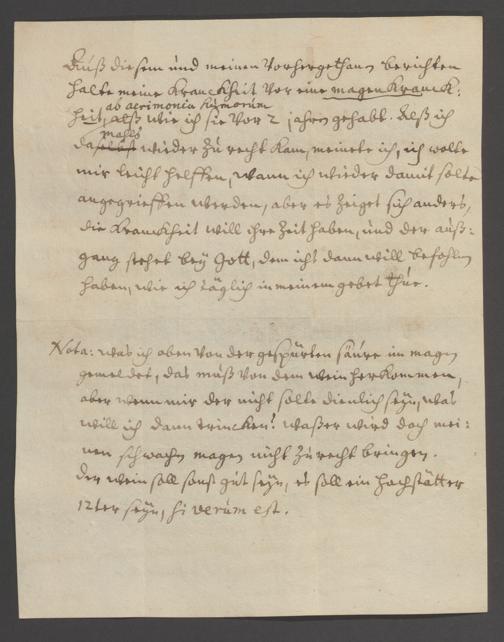 Auß diesem und meinen vorhergethanen berichten
halte meine Kranckheit vor eine magen Kranck:
ab acrimonia humorum
heit, alß wie ich sie vor 2 jahren gehabt. Alß ich
mahls
da wieder zu recht kam, meinete ich, ich wolte
mir leicht helffen, wann ich wieder damit solte
angegrieffen werden, aber es zeiget sich anders,
die Kranckheit will ihre Zeit haben, und der auß:
gang stehet bey Gott, dem ichs dann will befohlen
haben, wie ich täglich in meinem gebet thue.
Nota: was ich oben von der gespürten säure im magen
gemeldet, das muß von dem wein herkommen,
aber wenn mir der nicht solte dienlich seyn, was
will ich dann trincken? waßer wird doch mei:
nen schwachen magen nicht zu recht bringen.
der wein soll sonst gut seyn, es soll ein Hochstätter
12ter seyn, si verum est.